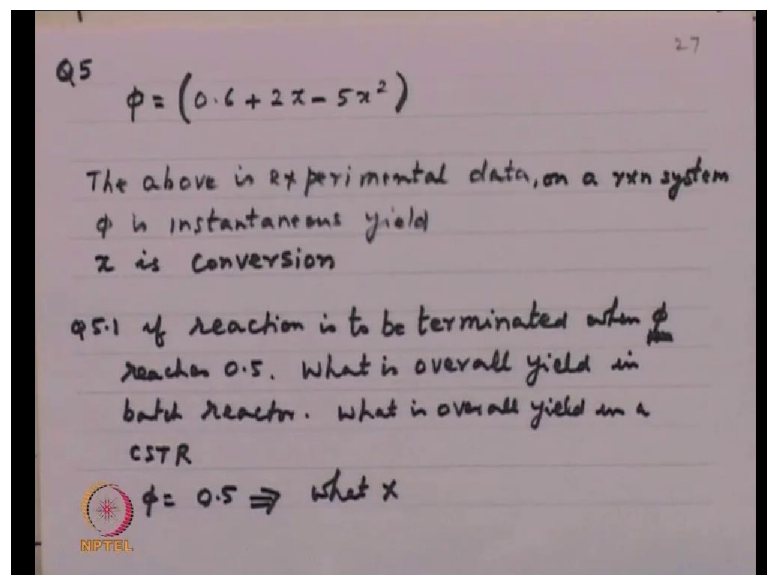 27
Q5
φ = (0.6 + 2x - 5x²)
The above is experimental data, on a rxn system
φ is instantaneous yield
x is conversion
Q5.1 if reaction is to be terminated when φ
reaches 0.5. What is overall yield in
batch reactor. What is overall yield in a
CSTR
φ = 0.5 ⇒ what x
NPTEL